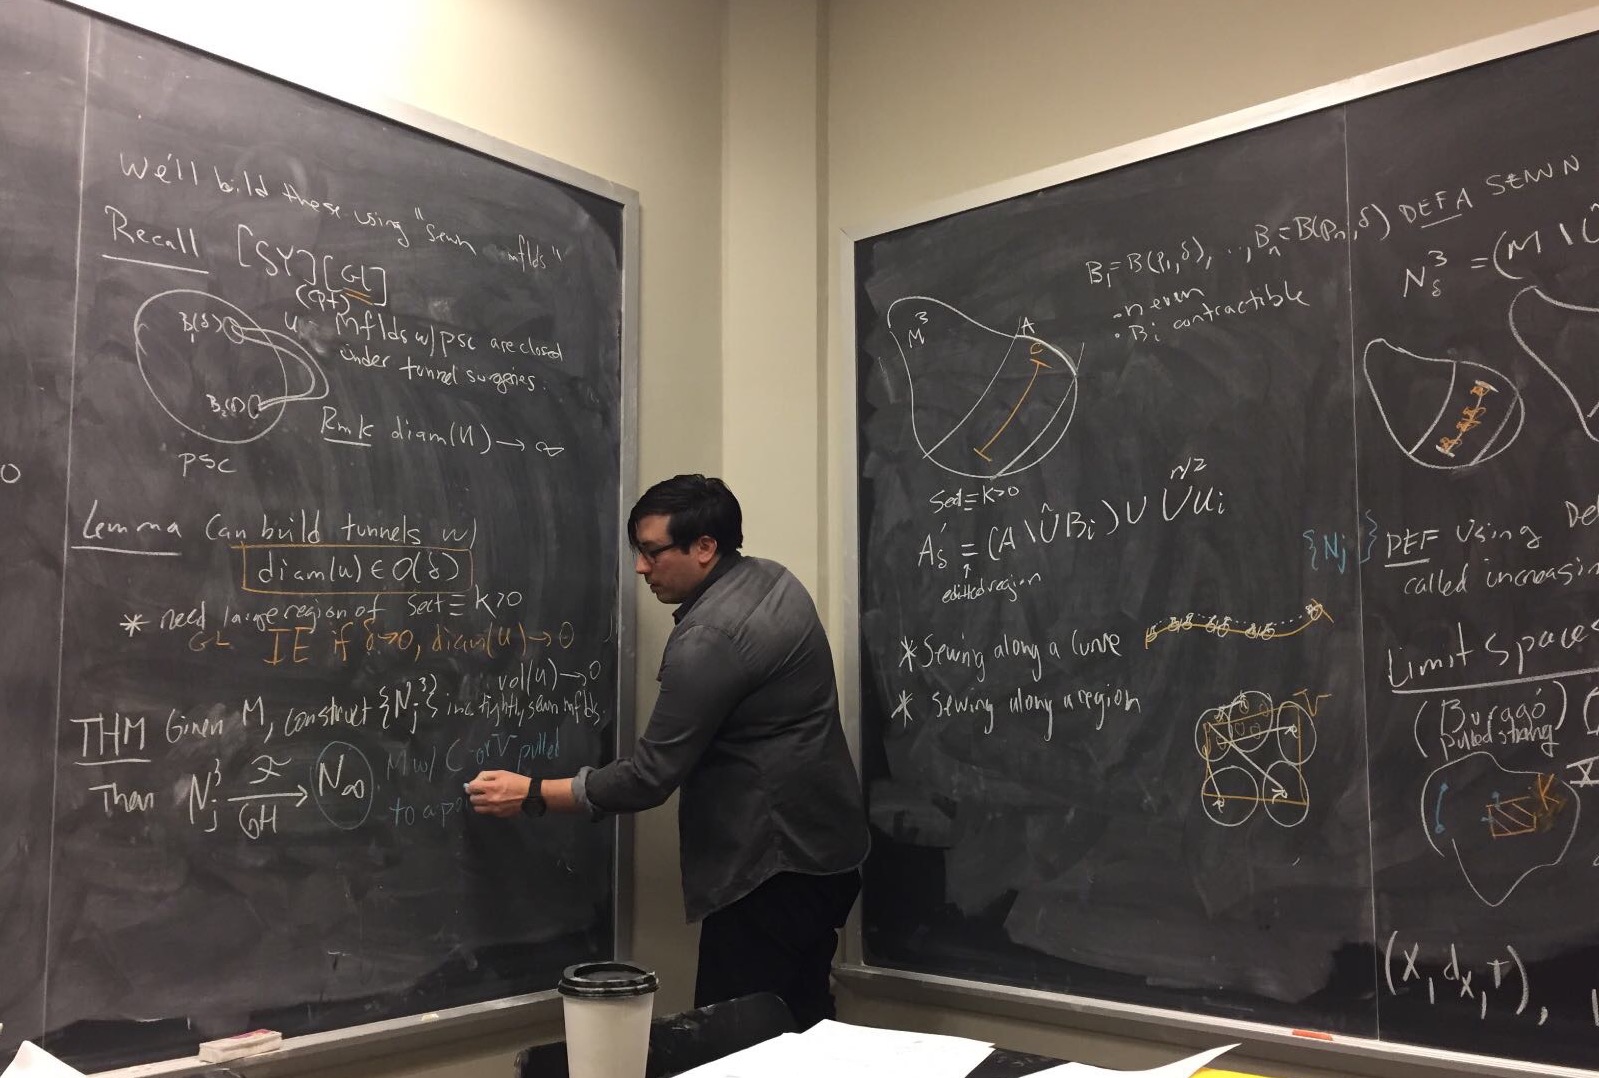 We'll build these using "sewn mflds"
Recall [SY][GL]
(cpt)
Mflds w/ psc are closed
under tunnel surgeries.
B₁(δ)
U
B₂(δ)
psc
Rmk diam(U) → ∞
0
Lemma Can build tunnels w/
diam(u) ∈ O(δ)
* need large region of Sect ≡ K>0
GL IE if δ→0, diam(U) → 0
vol(U) → 0
THM Given M, construct {N_j³} inc. tightly sewn mflds.
Then N_j³ F/GH → N∞. M w/ C or V pulled
to a po
B₁=B(p₁,δ), ..., B_n=B(p_n,δ)
• n even
• Bi contractible
M³
A
C
Sect ≡ K>0
A'_δ = (A \ ∪Bi) ∪ ∪Ui
n/2
edited region
* Sewing along a curve
* Sewing along a region
V
DEF A SEWN
N_δ³ = (M \ (∪
{N_j}
DEF Using
called increasin
Limit Spaces
(Burago)
pulled string
K
X
(X, d_X, T),